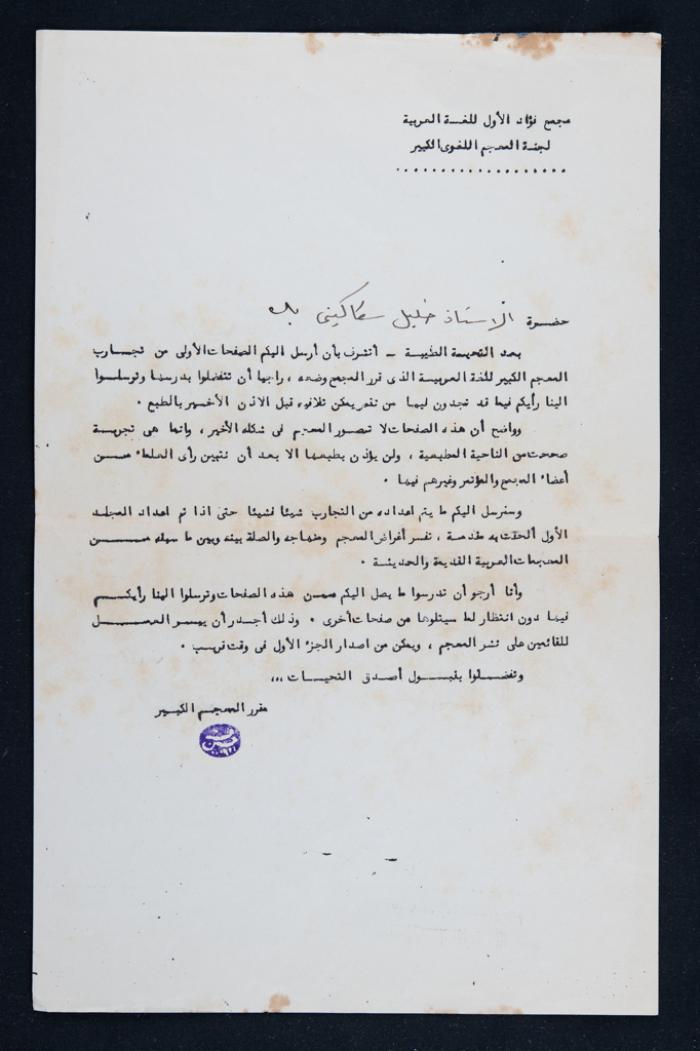 مجمع فؤاد الأول للغة العربية
لجنة المعجم اللغوى الكبير
..................
حضرة الاستاذ خليل سكاكينى بك
بعد التحية الطيبة – أتشرف بأن أرسل اليكم الصفحات الأولى من تجارب
المعجم الكبير للغة العربية الذى قرر المجمع وضعه ، راجيا أن تتفضلوا بدرسها وترسلوا
الينا رأيكم فيما قد تجدون فيها من نقص يمكن تلافيه قبل الاذن الأخير بالطبع .
وواضح أن هذه الصفحات لا تصور المعجم فى شكله الأخير ، وانما هى تجربة
صححت من الناحية المطبعية ، ولن يؤذن بطبعها الا بعد أن نتبين رأى العلماء من
أعضاء المجمع والمؤتمر وغيرهم فيها .
وسنرسل اليكم ما يتم اعداده من التجارب شيئا فشيئا حتى اذا تم اعداد المجلد
الأول ألحقت به مقدمة ، تفسر أغراض المعجم ومنهاجه والصلة بينه وبين ما سبقه من
المعجمات العربية القديمة والحديثة .
وأنا أرجو أن تدرسوا ما يصل اليكم من هذه الصفحات وترسلوا الينا رأيكم
فيها دون انتظار لما سيتلوها من صفحات أخرى . وذلك أجدر أن ييسر العمل
للقائمين على نشر المعجم ، ويمكن من اصدار الجزء الأول فى وقت قريب .
وتفضلوا بقبول أصدق التحيات ،،،
مقرر المعجم الكبير